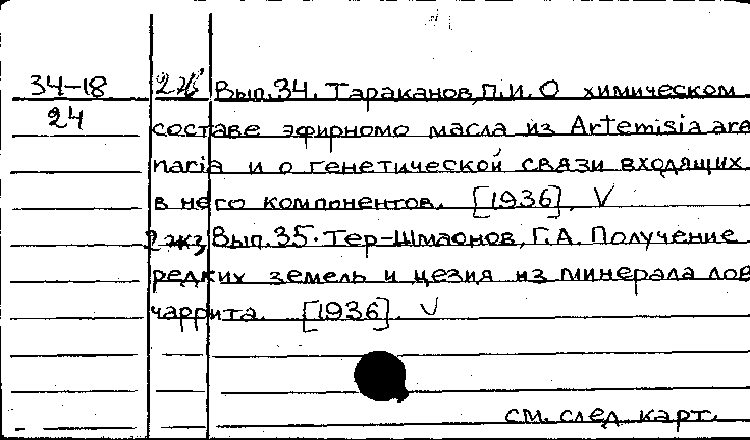 34-18 2ж Вып.34. Тараканов, П.И. О химическом
24 составе эфирного масла из Artemisia are
naria и о генетической связи входящих
в него компонентов. [1936]. V
2 экз, Вып.35. Тер-Шмаонов, Г.А. Получение
редких земель и цезия из минерала лов
чаррита. [1936]. V
см. след. карт.